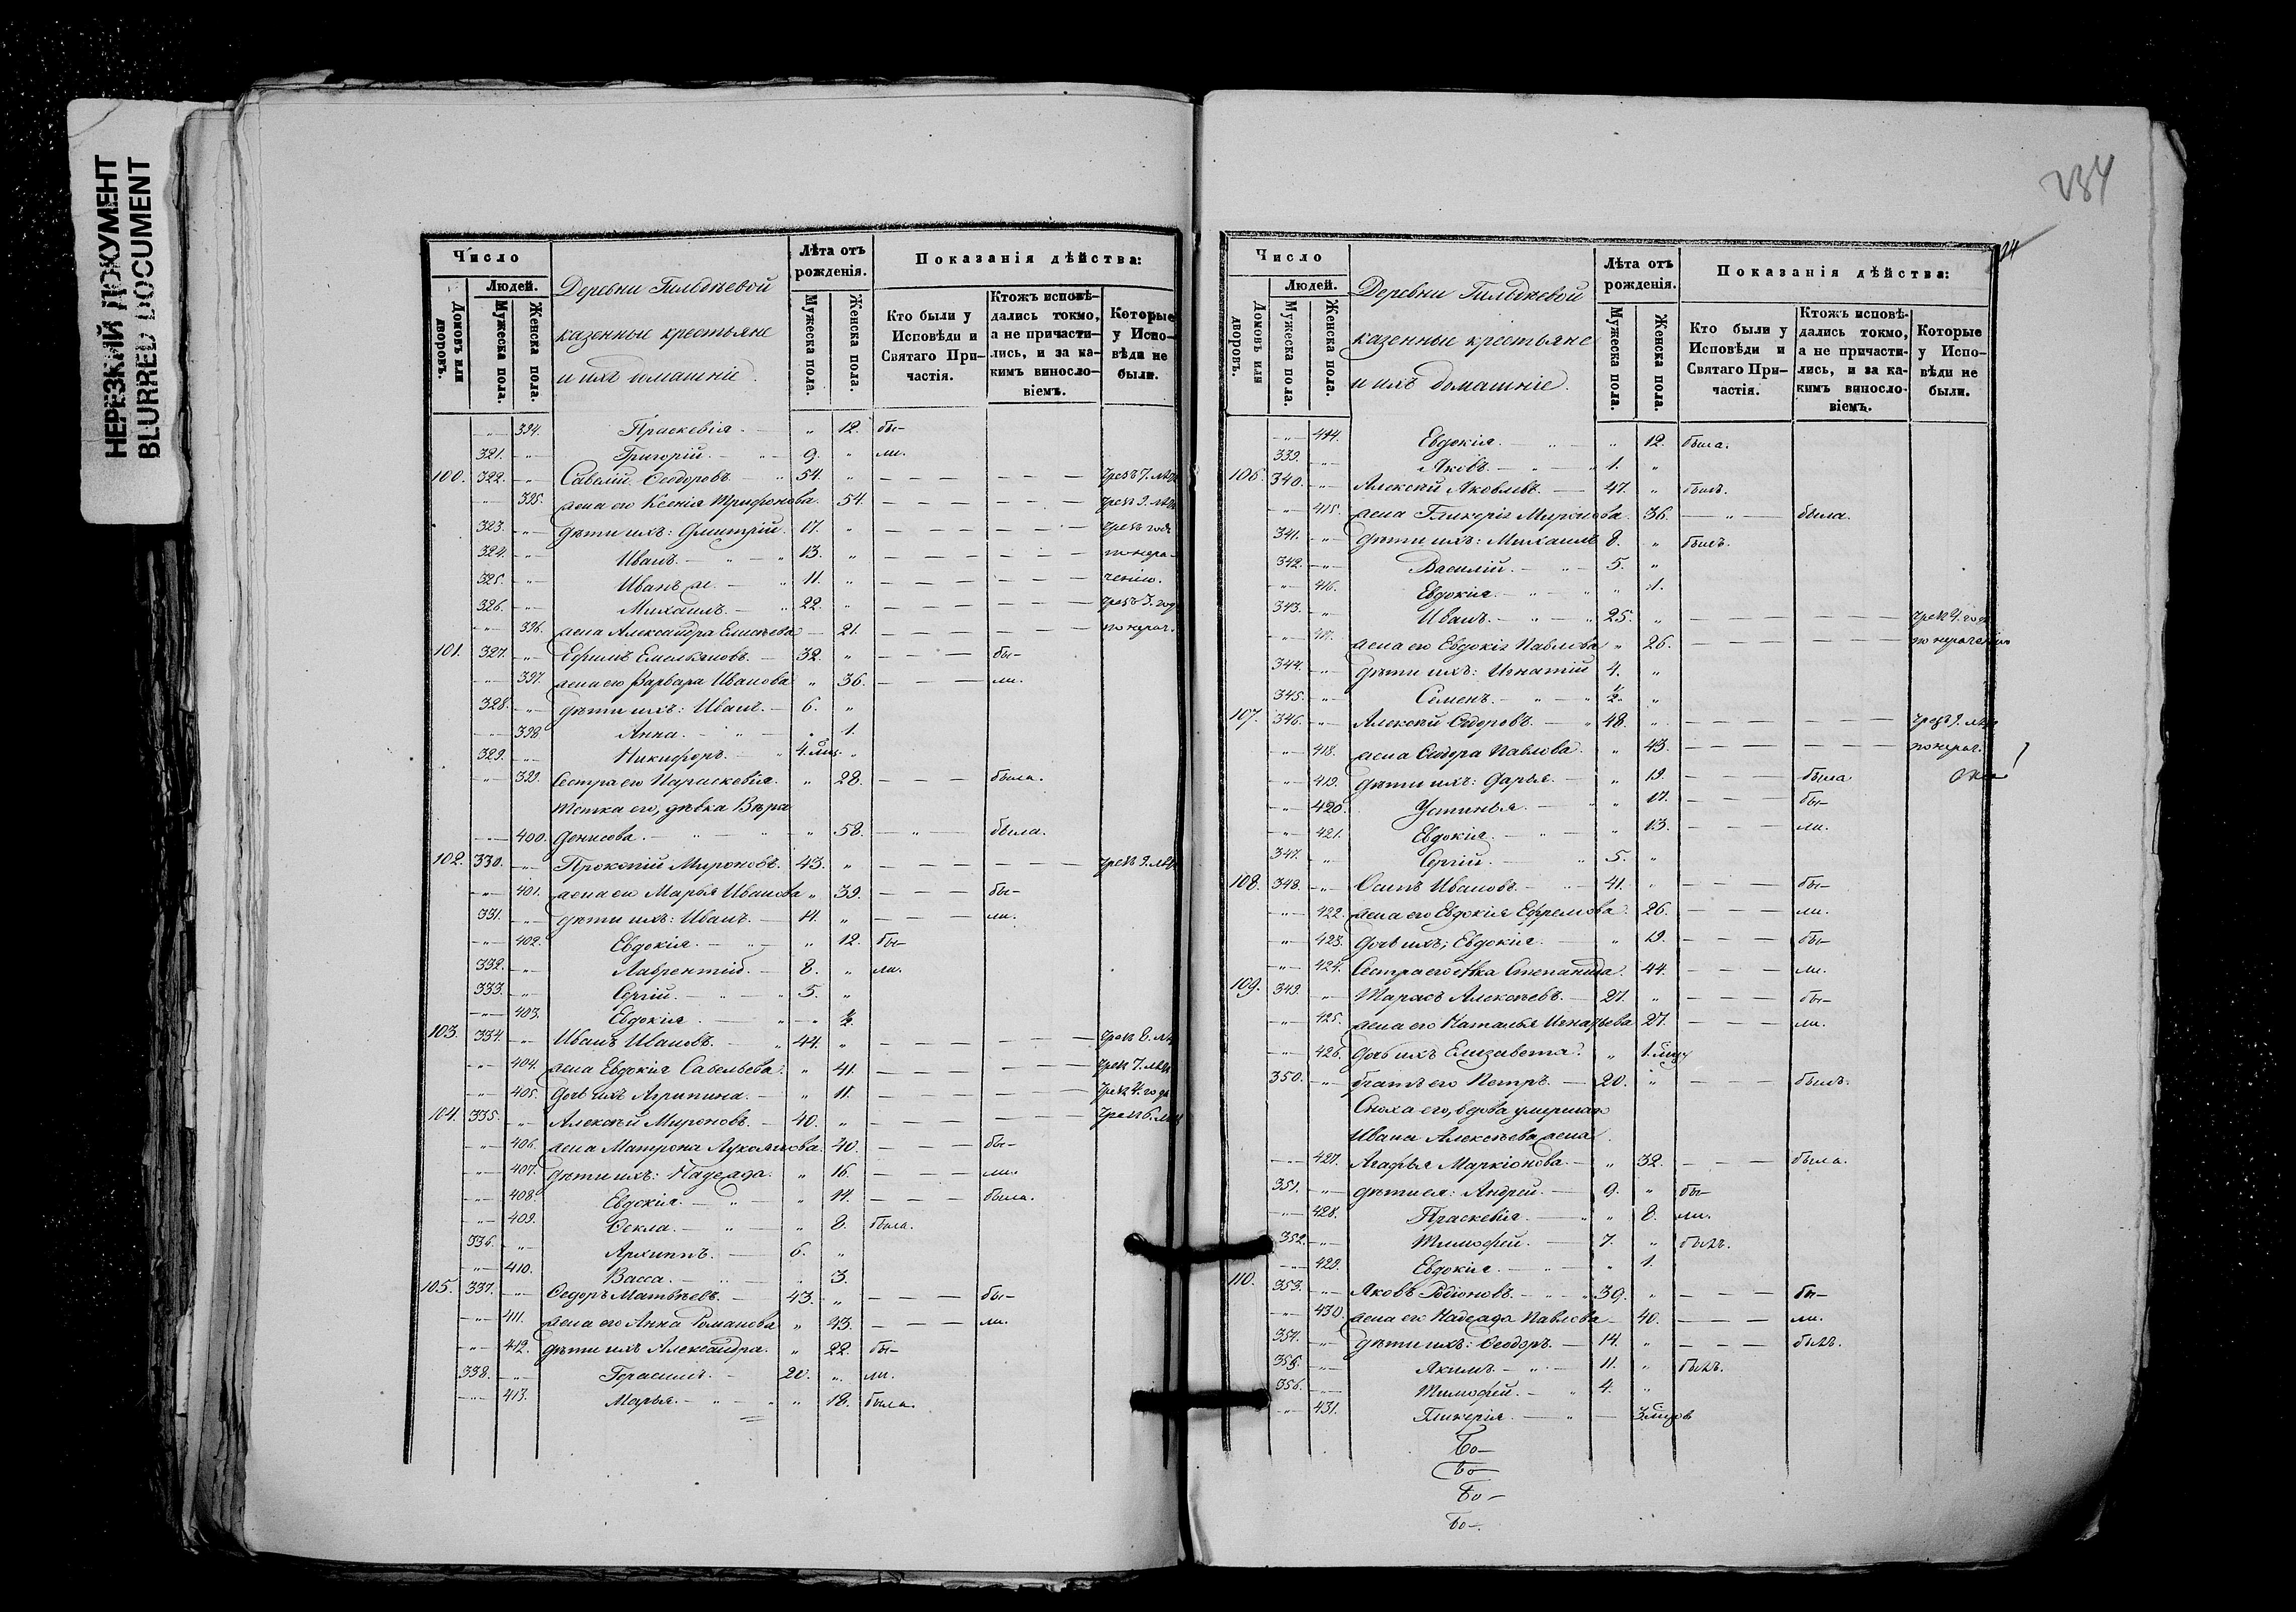 НЕРЕЗКИЙ ДОКУМЕНТ
BLURRED DOCUMENT
Число
Людей.
Домовъ или дворовъ.
Мужеска пола.
Женска пола.
Деревни Гильдѣевой
казенные крестьяне
и ихъ домашніе.
Лѣта отъ рожденія.
Мужеска пола.
Женска пола.
Показанія дѣйства:
Кто были у Исповѣди и Святаго При-частія.
Ктожъ исповѣ-дались токмо, а не причасти-лись, и за ка-кимъ винosло-віемъ.
Которые у Испо-вѣди не были.
„ 394. Праскевія. „ 12. бы-
321. „ Григорій. 9. „ ли.
100. 322. „ Савелій Ѳеодоровъ. 54. „ чрезъ 7. лѣтъ
„ 395. жена его Ксенія Трифонова. 54. чрезъ 9. лѣтъ
323. „ дѣти ихъ: Дмитрій. 17. „ чрезъ годъ
324. „ Иванъ. 13. „ по нера-
325. „ Иванъ же. 11. „ ченію.
326. „ Михаилъ. 22. „ чрезъ 3. год
„ 396. жена Александра Елисѣева 21. по нерач.
101. 327. „ Ефимъ Емельяновъ. 32. „ бы-
„ 397. жена его Варвара Иванова „ 36. ли.
328. „ дѣти ихъ: Иванъ. 6. „
„ 398. Анна. „ 1.
329. „ Никифоръ. 4. мѣс. „
„ 399. Сестра его Параскевія. „ 28. была.
Тетка его, дѣвка Вѣра
„ 400. Денисова. „ 58. „ была.
102. 330. „ Прокопій Мироновъ. 43. „ чрезъ 9. лѣтъ
„ 401. жена его Марья Иванова „ 39. бы-
331. „ дѣти ихъ: Иванъ. 14. „ ли.
„ 402. Евдокія. „ 12. бы-
332. „ Лаврентій. 8. „ ли.
333. „ Сергій. 5. „
„ 403. Евдокія. „ ½.
103. 334. „ Иванъ Ивановъ. 44. „ чрезъ 8. лѣ
„ 404. жена Евдокія Савельева. „ 41. чрезъ 7. лѣтъ
„ 405. дочь ихъ Агрипина. „ 11. чрезъ 4. года
104. 335. „ Алексѣй Мироновъ. 40. „ чрезъ 6. лѣтъ
„ 406. жена Матрона Лукоянова. 40. бы-
„ 407. дѣти ихъ: Надежда. „ 16. ли.
„ 408. Евдокія. „ 14. была.
„ 409. Ѳекла. „ 8. была.
336. „ Архиппъ. 6. „
„ 410. Васса. „ 3.
105. 337. „ Ѳедоръ Матвѣевъ. 43. „ бы-
„ 411. жена его Анна Романова „ 43. ли.
„ 412. дѣти ихъ Александра. „ 22. бы-
338. „ Герасимъ. 20. „ ли.
„ 413. Марья. „ 18. была.
234
Число
Людей.
Домовъ или дворовъ.
Мужеска пола.
Женска пола.
Деревни Гильдѣевой
казенные крестьяне
и ихъ домашніе.
Лѣта отъ рожденія.
Мужеска пола.
Женска пола.
Показанія дѣйства:
Кто были у Исповѣди и Святаго При-частія.
Ктожъ исповѣ-дались токмо, а не причасти-лись, и за ка-кимъ винosло-віемъ.
Которые у Испо-вѣди не были.
„ 414. Евдокія. „ 12. была.
339. „ Яковъ. 1. „
106. 340. „ Алексѣй Яковлевъ. 47. „ былъ.
„ 415. жена Гликерія Миронова. 36. „ была.
341. „ дѣти ихъ: Михаилъ 8. „ былъ.
342. „ Василій. 5. „
„ 416. Евдокія. „ 1.
343. „ Иванъ. 25. „ чрезъ 4. года
„ 417. жена его Евдокія Павлова „ 26. по нераченію
344. „ дѣти ихъ: Игнатій 4. „
345. „ Семенъ. ½. „
107. 346. „ Алексѣй Ѳедоровъ. 48. „ чрезъ 9. лѣтъ
„ 418. жена Ѳедора Павлова. „ 43. по нерач.
„ 419. дѣти ихъ: Дарья. „ 19. была
„ 420. Устинья. „ 17. бы-
„ 421. Евдокія. „ 13. ли.
347. „ Сергій. 5. „
108. 348. „ Осипъ Ивановъ. 41. „ бы-
„ 422. жена его Евдокія Ефремова. 26. ли.
„ 423. дочь ихъ; Евдокія. „ 19. бы-
„ 424. Сестра его дѣвка Степанида. 44. ли.
109. 349. „ Тарасъ Алексѣевъ. 27. „ бы-
„ 425. жена его Наталья Игнатьева 27. ли.
„ 426. дочь ихъ Елизавета. „ 1. мѣсяц
350. „ братъ его Петръ. 20. „ былъ.
Сноха его, вдова умершаго
Ивана Алексѣева жена
„ 427. Агафья Маркіонова. „ 32. была.
351. „ дѣти ея: Андрей. 9. „ бы-
„ 428. Праскевія. „ 8. ли.
352. „ Тимофей. 7. „ былъ.
„ 429. Евдокія. „ 1.
110. 353. „ Яковъ Родіоновъ. 39. „ бы-
„ 430. жена его Надежда Павлова 40. ли.
354. „ дѣти ихъ: Ѳеодоръ. 14. „ былъ.
355. „ Якимъ. 11. „ былъ.
356. „ Тимофей. 4. „
„ 431. Гликерія. 3. мѣсяцовъ